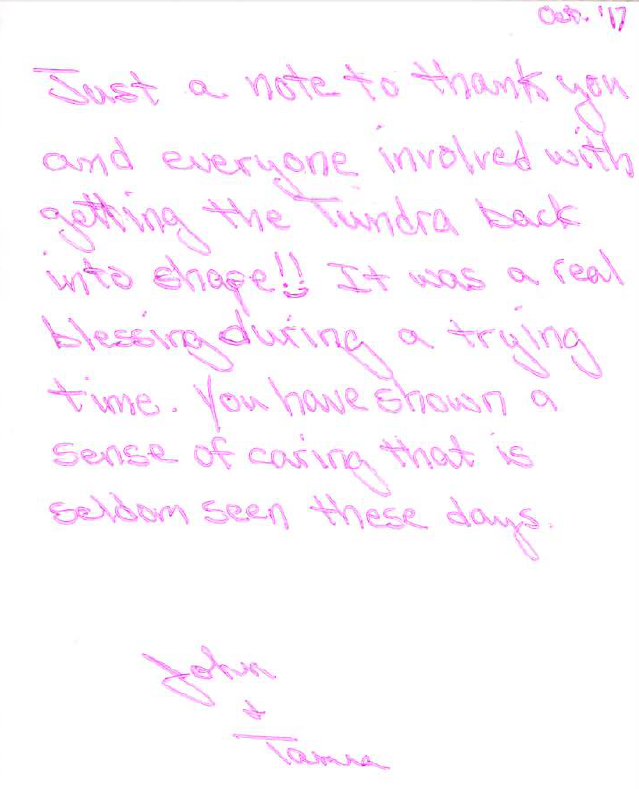 Oct. '17
Just a note to thank you
and everyone involved with
getting the Tundra back
into shape!! It was a real
blessing during a trying
time. You have shown a
sense of caring that is
seldom seen these days.
John
+